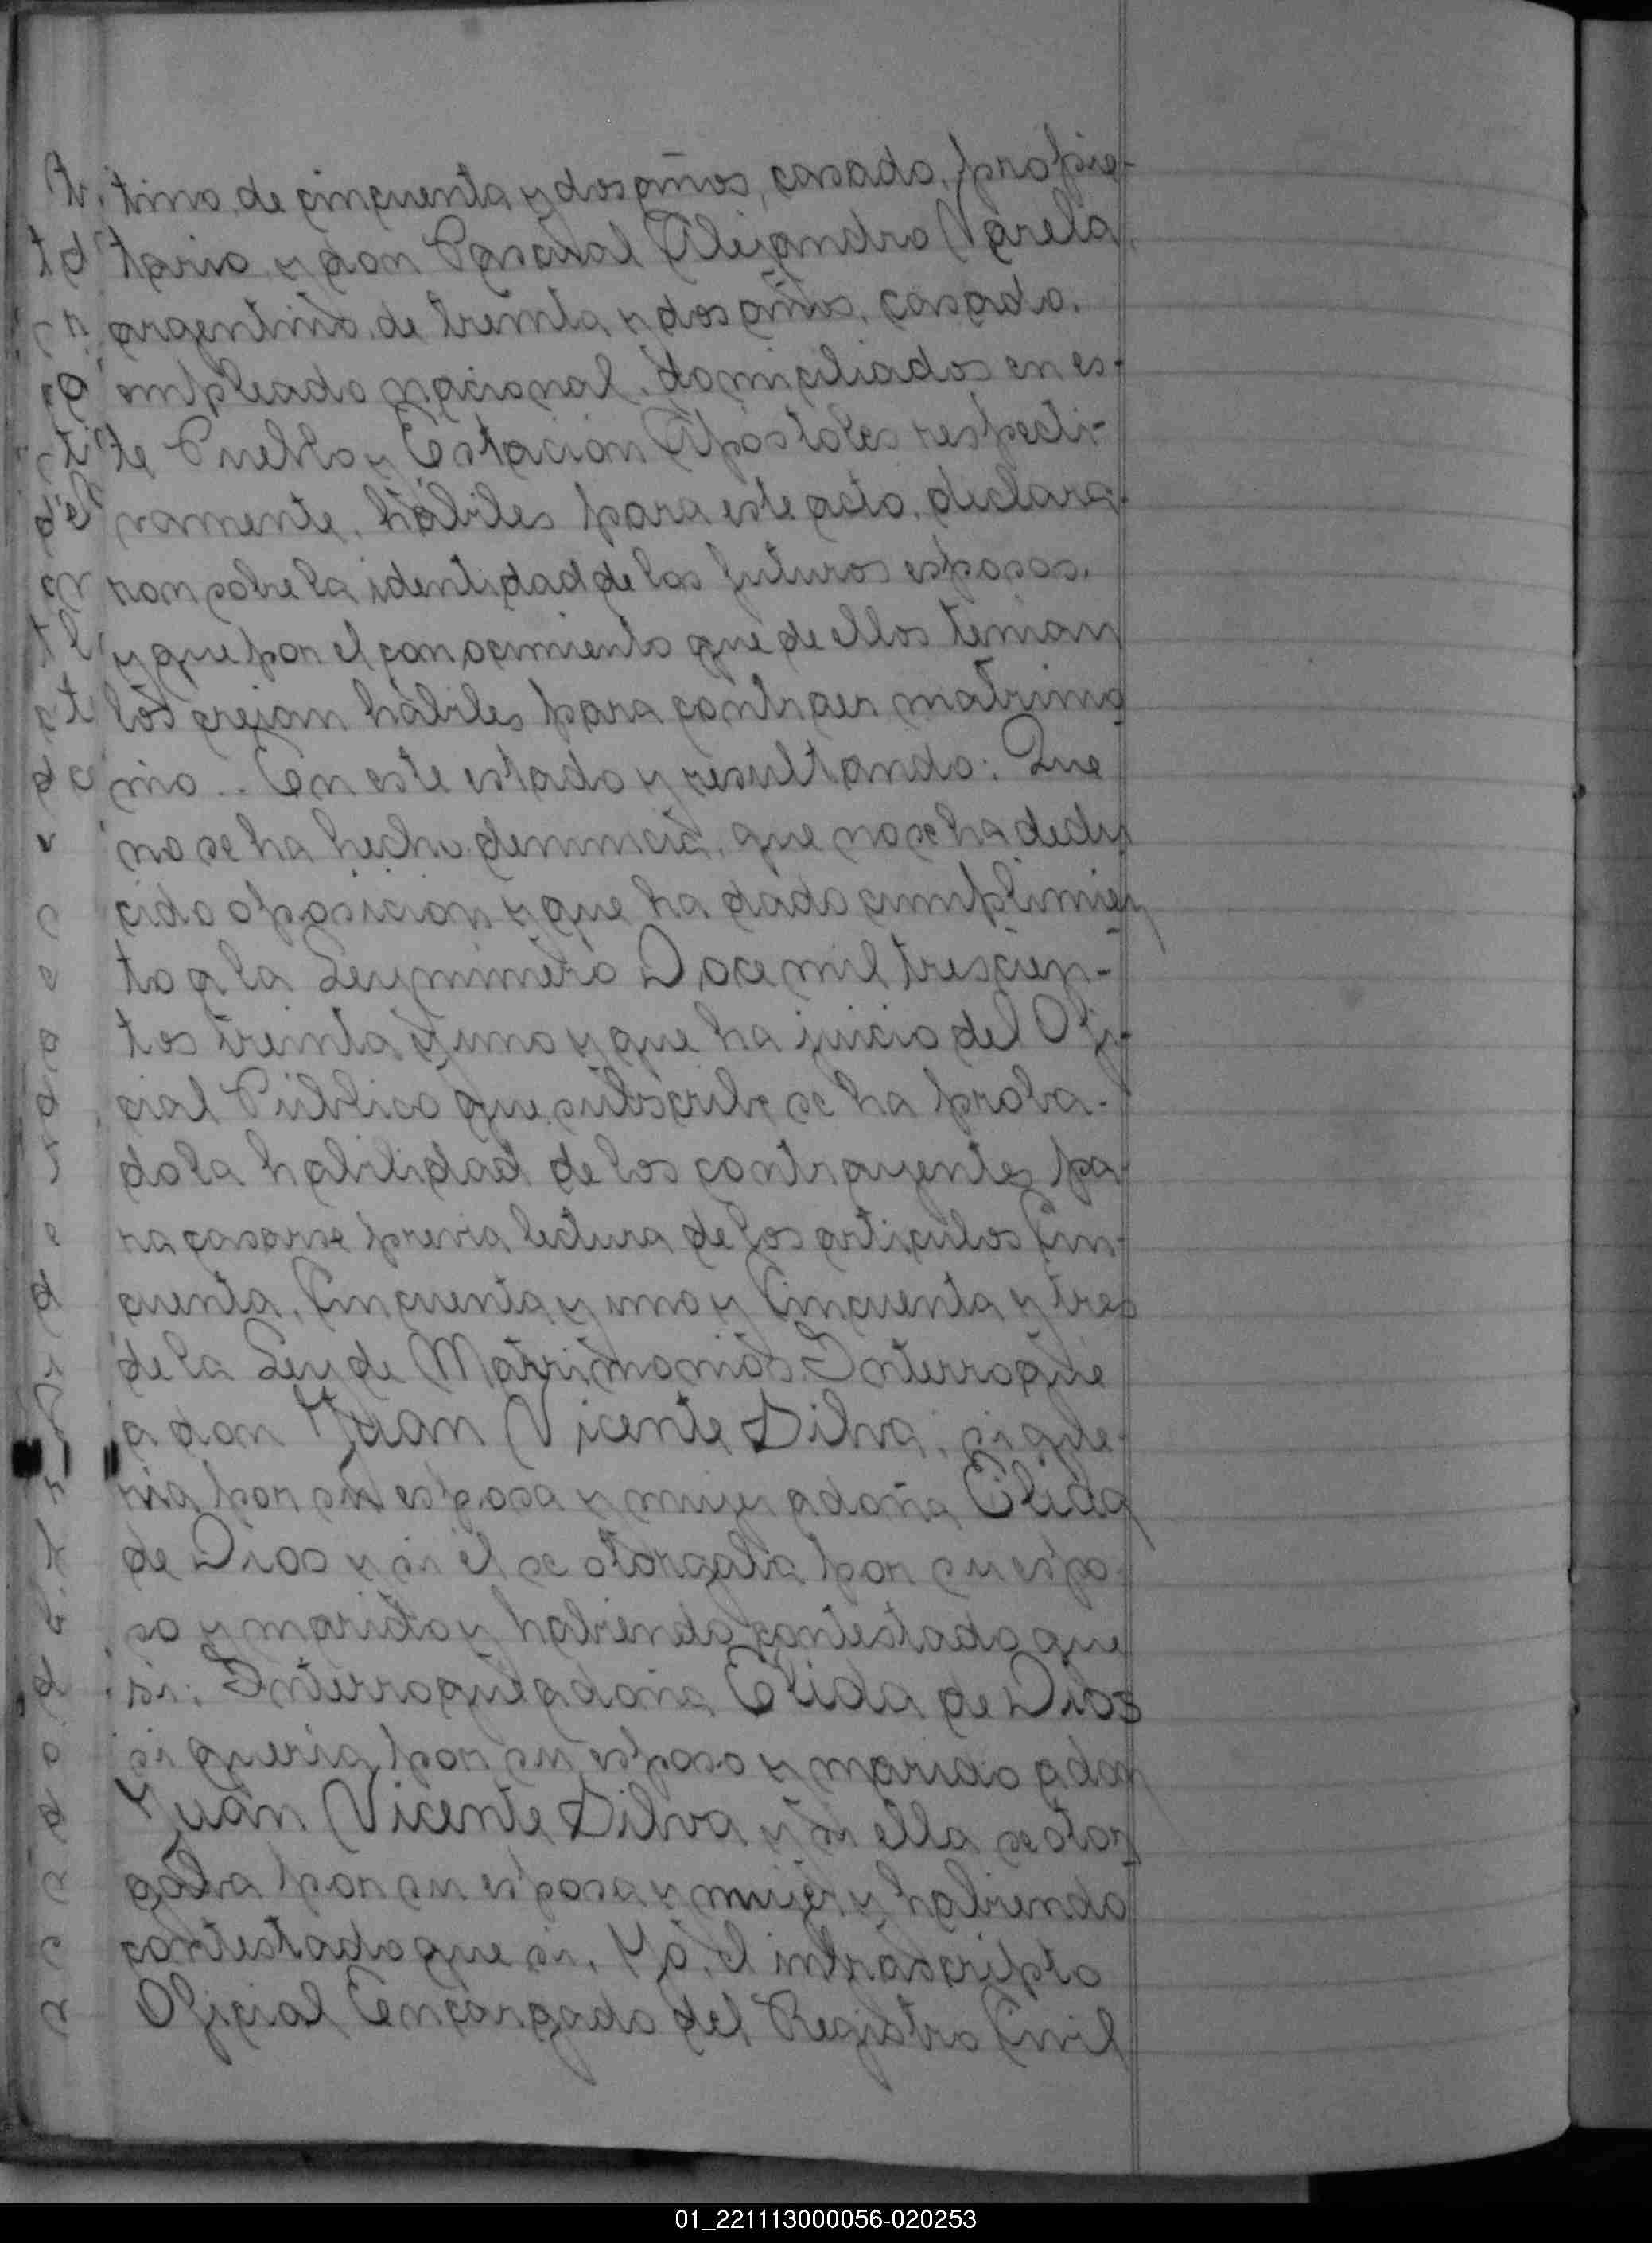 tino, de cincuenta y dos años, casado, propie-
tario y don Pascual Alejandro Varela,
argentino, de treinta y dos años, casado,
empleado nacional, domiciliados en es-
te Pueblo y Estación Apóstoles respecti-
vamente, hábiles para este acto, declara-
ron sobre la identidad de los futuros esposos,
y que por el conocimiento que de ellos tenian
los creian hábiles para contraer matrimo
nio.. En este estado y resultando: Que
no se ha hecho denuncia, que no se ha dedu
cido oposicion y que ha dado cumplimien
to a la Ley número Doce mil trescien-
tos treinta y uno y que ha juicio del Ofi-
cial Público que suscribe se ha proba-
do la habilidad de los contrayentes pa-
ra casarse previa lectura de los articulos Cin-
cuenta, Cincuenta y uno y Cincuenta y tres
de la Ley de Matrimonio: Interrogué
a don Juan Vicente Silva, si que-
ria por su esposa y mujer a doña Elida
de Dios y si él se otorgaba por su espo-
so y marido y habiendo contestado que
si; Interrogué a doña Elida de Dios
si queria por su esposo y marido a don
Juan Vicente Silva y si ella se otor
gaba por su esposa y mujer y habiendo
contestado que si, Yo, el infrascripto
Oficial Encargado del Registro Civil
01_221113000056-020253